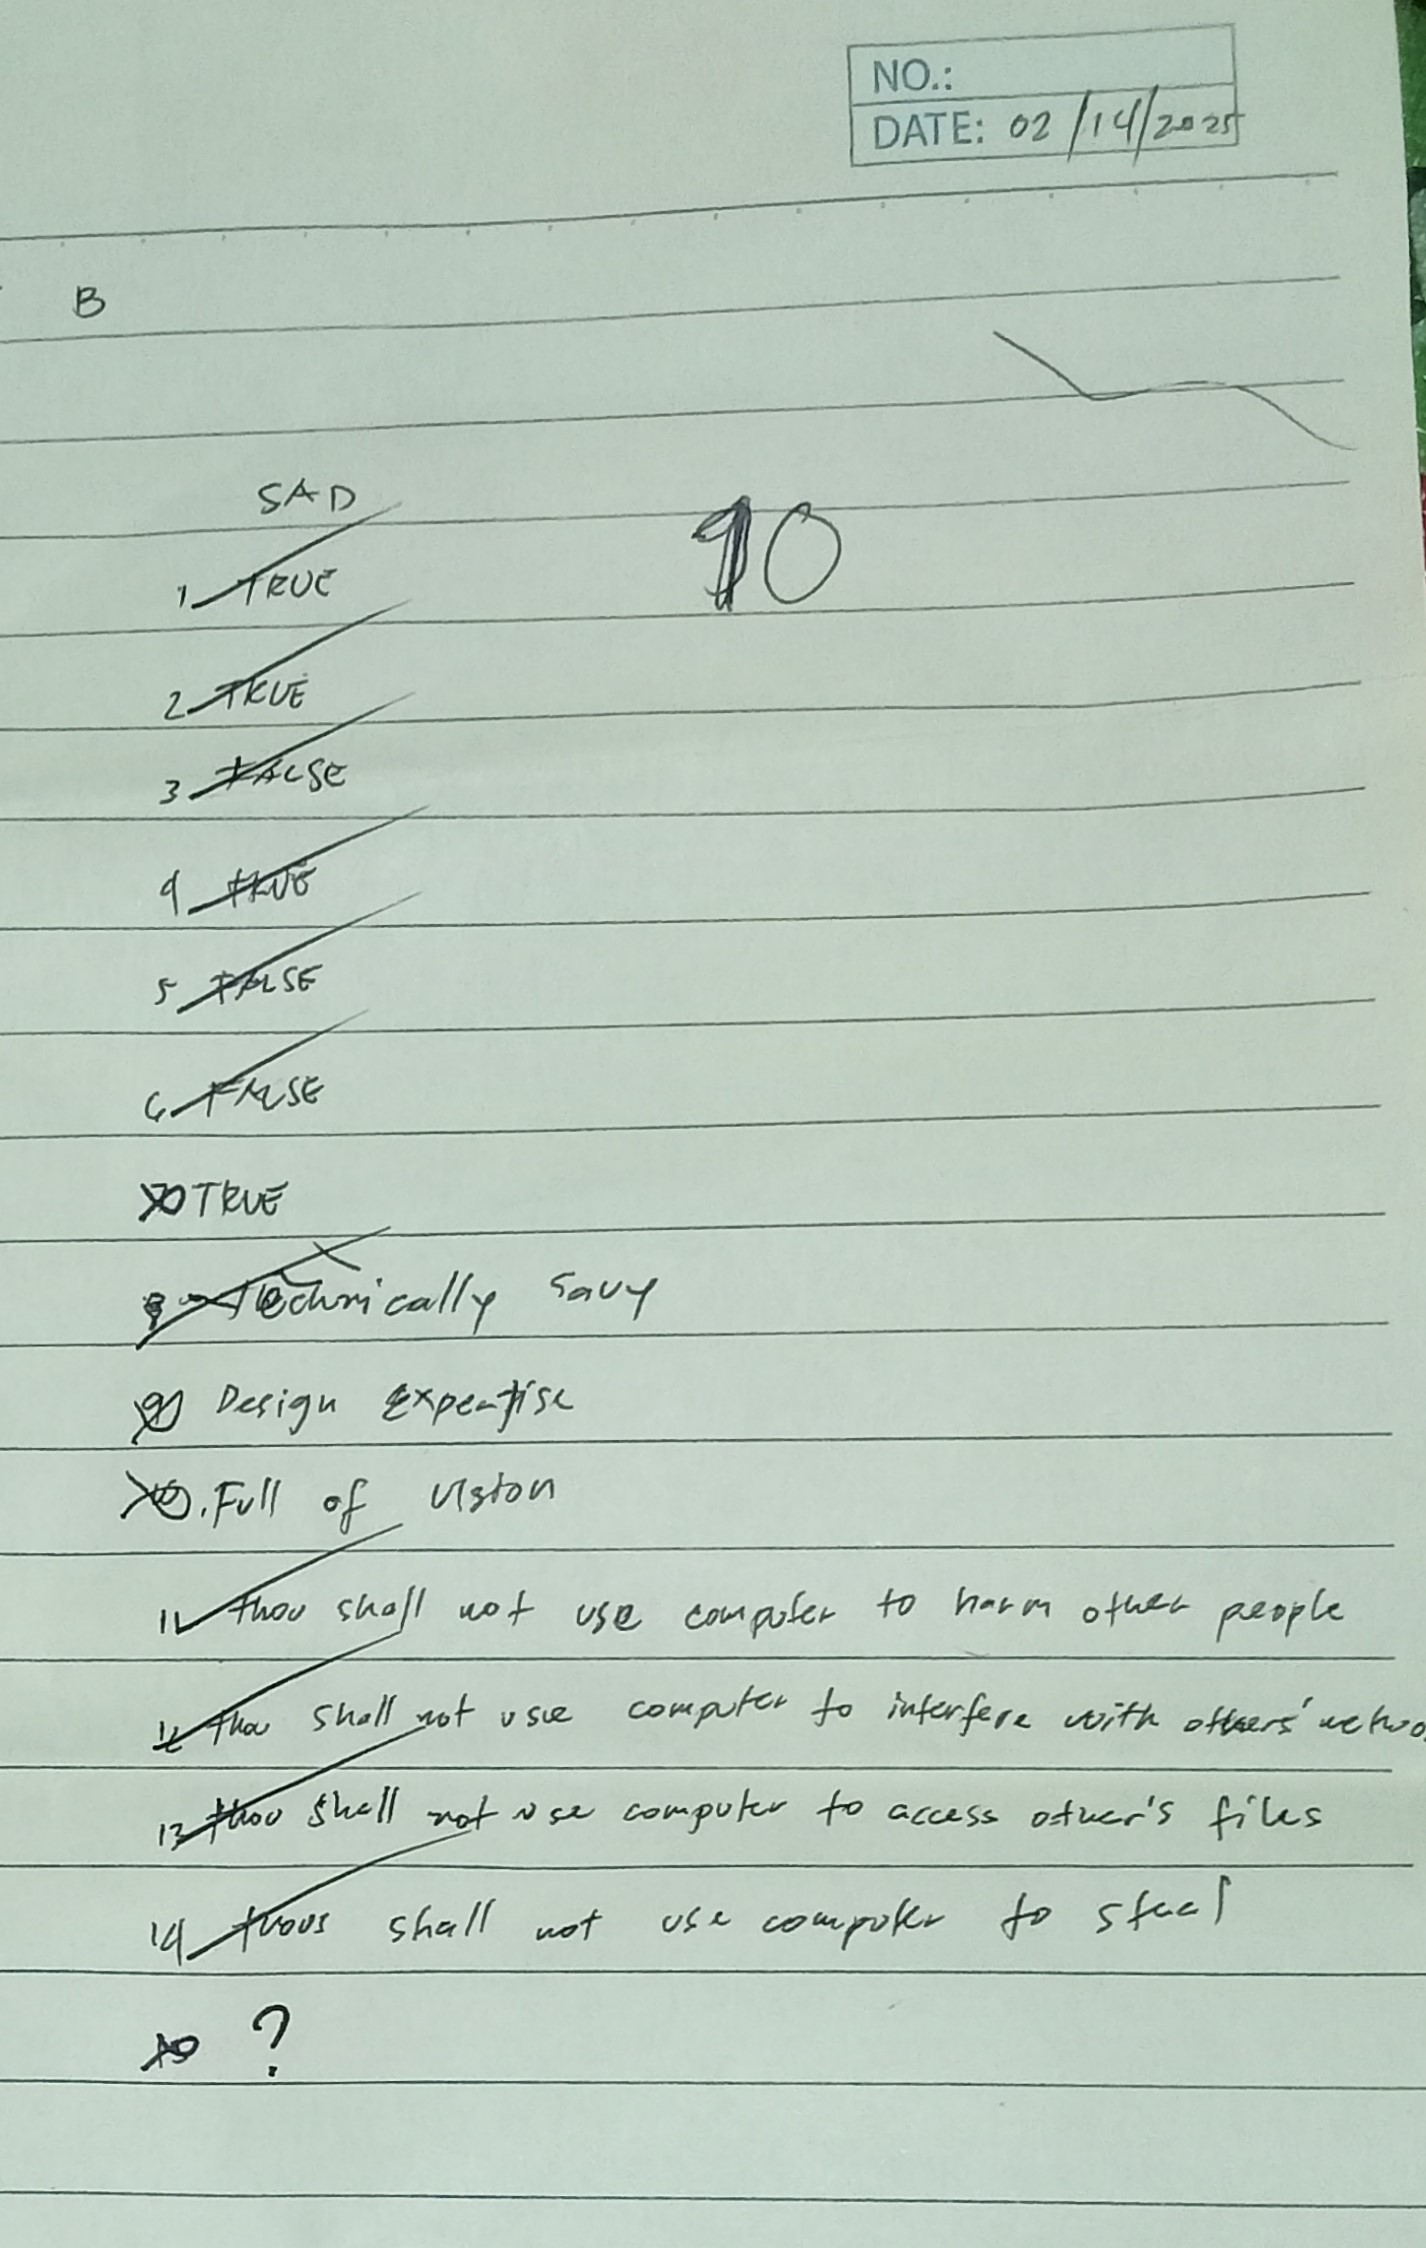 NO.:
DATE: 02/14/2025
B
SAD
10
1. TRUE
2 TRUE
3 FALSE
4 TRUE
5 FALSE
6 FALSE
7 TRUE
8 Technically Savy
9 Design Expertise
10. Full of vision
11 thou shall not use computer to harm other people
12 thou shall not use computer to interfere with others' netwo
13 thou shall not use computer to access other's files
14 thous shall not use computer to steal
15 ?